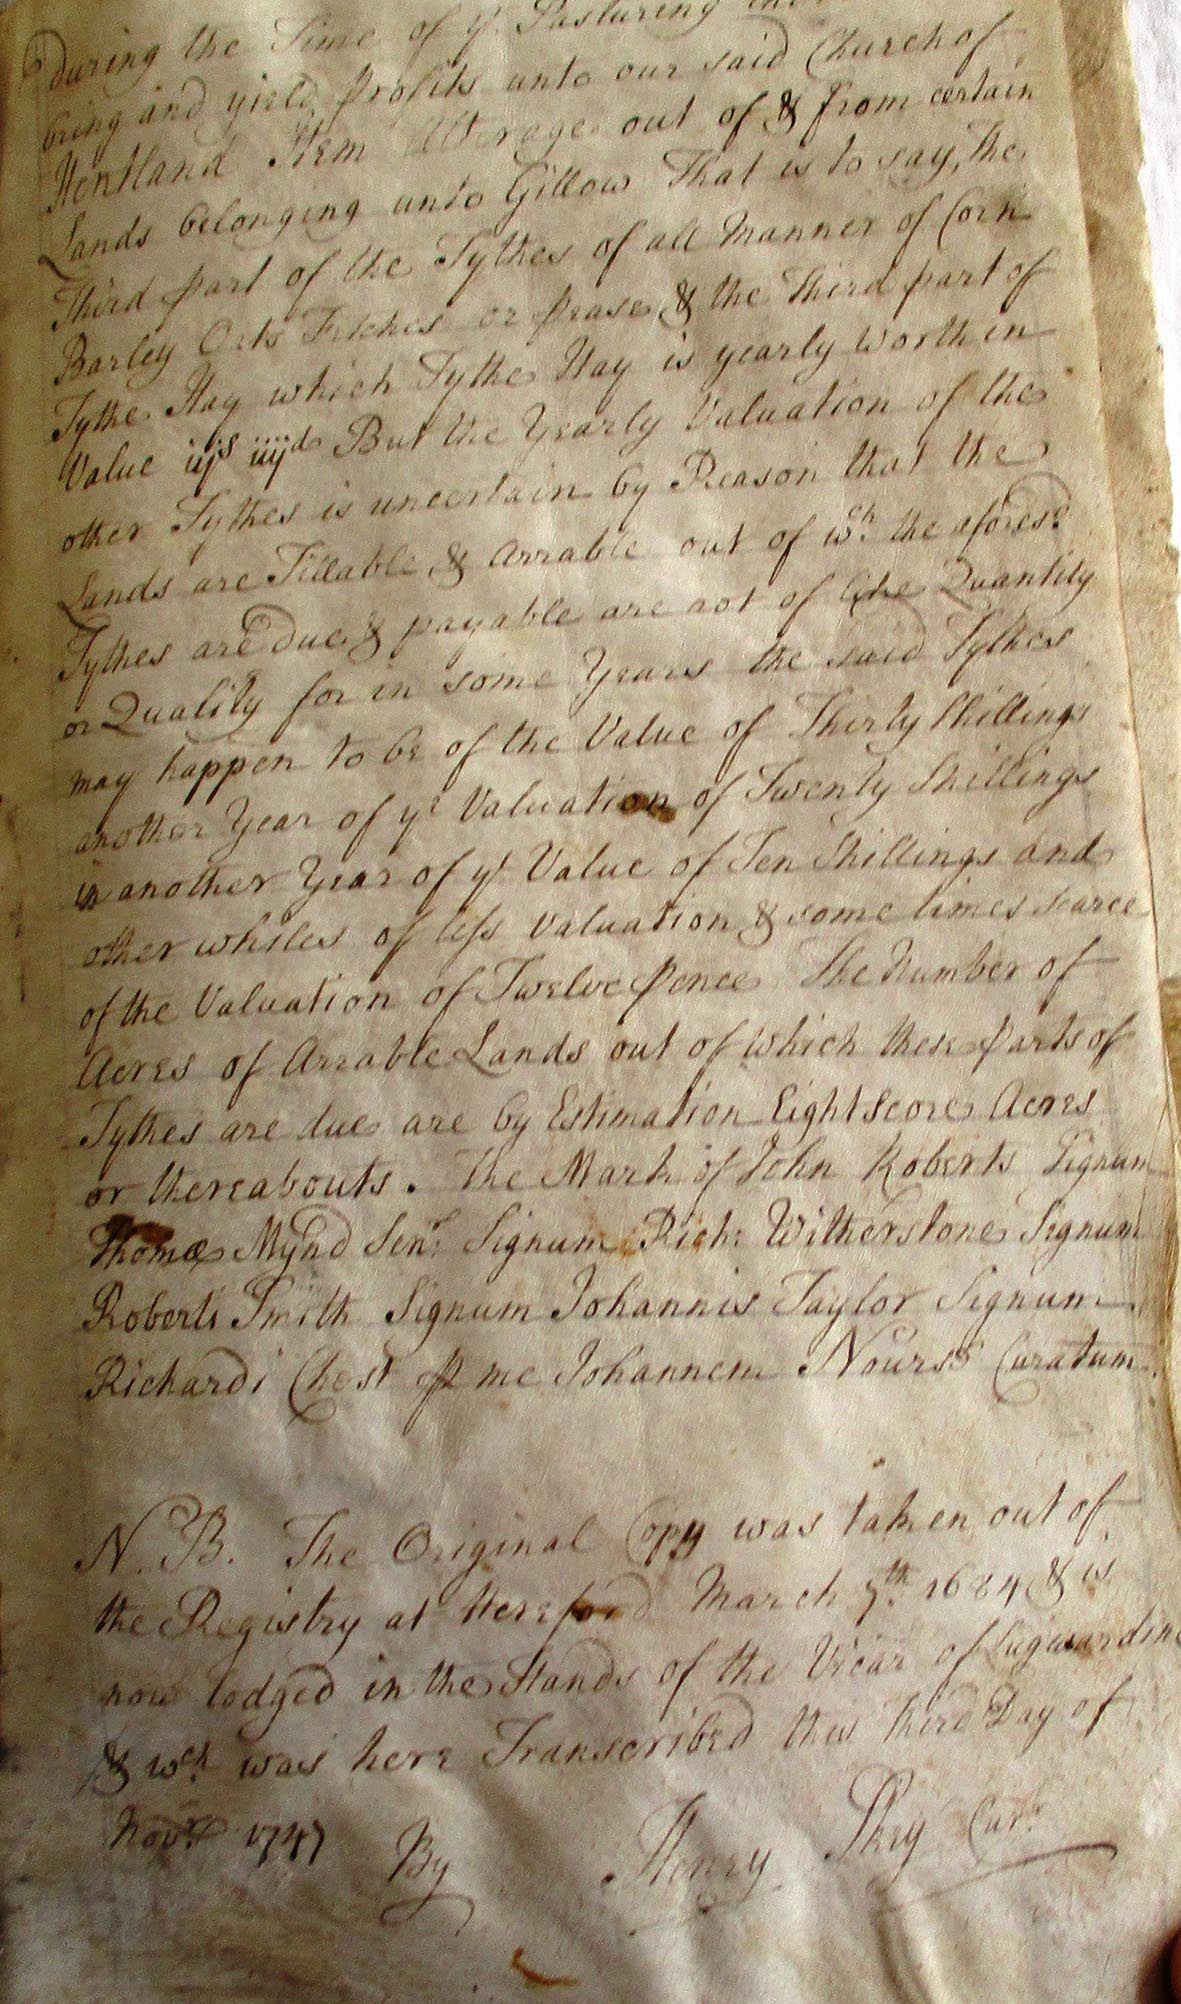 During the Time of ye. Pasturing
bring and yield Profits unto our said Church of
Hentland Item Alterage out of & from certain
Lands belonging unto Gillow That is to say, the
Third part of the Tythes of all Manner of Corn
Barley Oats Fetches or Pease & the Third part of
Tythe Hay which Tythe Hay is yearly Worth in
Value iijs iiijd But the Yearly Valuation of the
other Tythes is uncertain by Reason that the
Lands are Tillable & Arrable out of wch. the aforesd.
Tythes are due & payable are not of like Quantity
or Quality for in some Years the said Tythes
may happen to be of the Value of Thirty Shillings
another Year of ye Valuation of Twenty Shillings
in another Year of ye Value of Ten Shillings and
other whiles of less Valuation & some times scarce
of the Valuation of Twelve Pence The Number of
Acres of Arrable Lands out of which these Parts of
Tythes are due are by Estimation Eight score Acres
or thereabouts. The Mark of John Roberts Signum
Thomæ Mynd Senr. Signum Rich: Witherstone Signum
Roberti Smith Signum Johannis Taylor Signum
Richardi Chest P me Johannem Nourse Curatum.
N. B. The Original Copy was taken out of
the Registry at Hereford March 7th. 1624 & is
now lodged in the Hands of the Vicar of Lugwardine
& wch. was here Transcribed this third Day of
Novr 1747 By Henry Skey Curt.